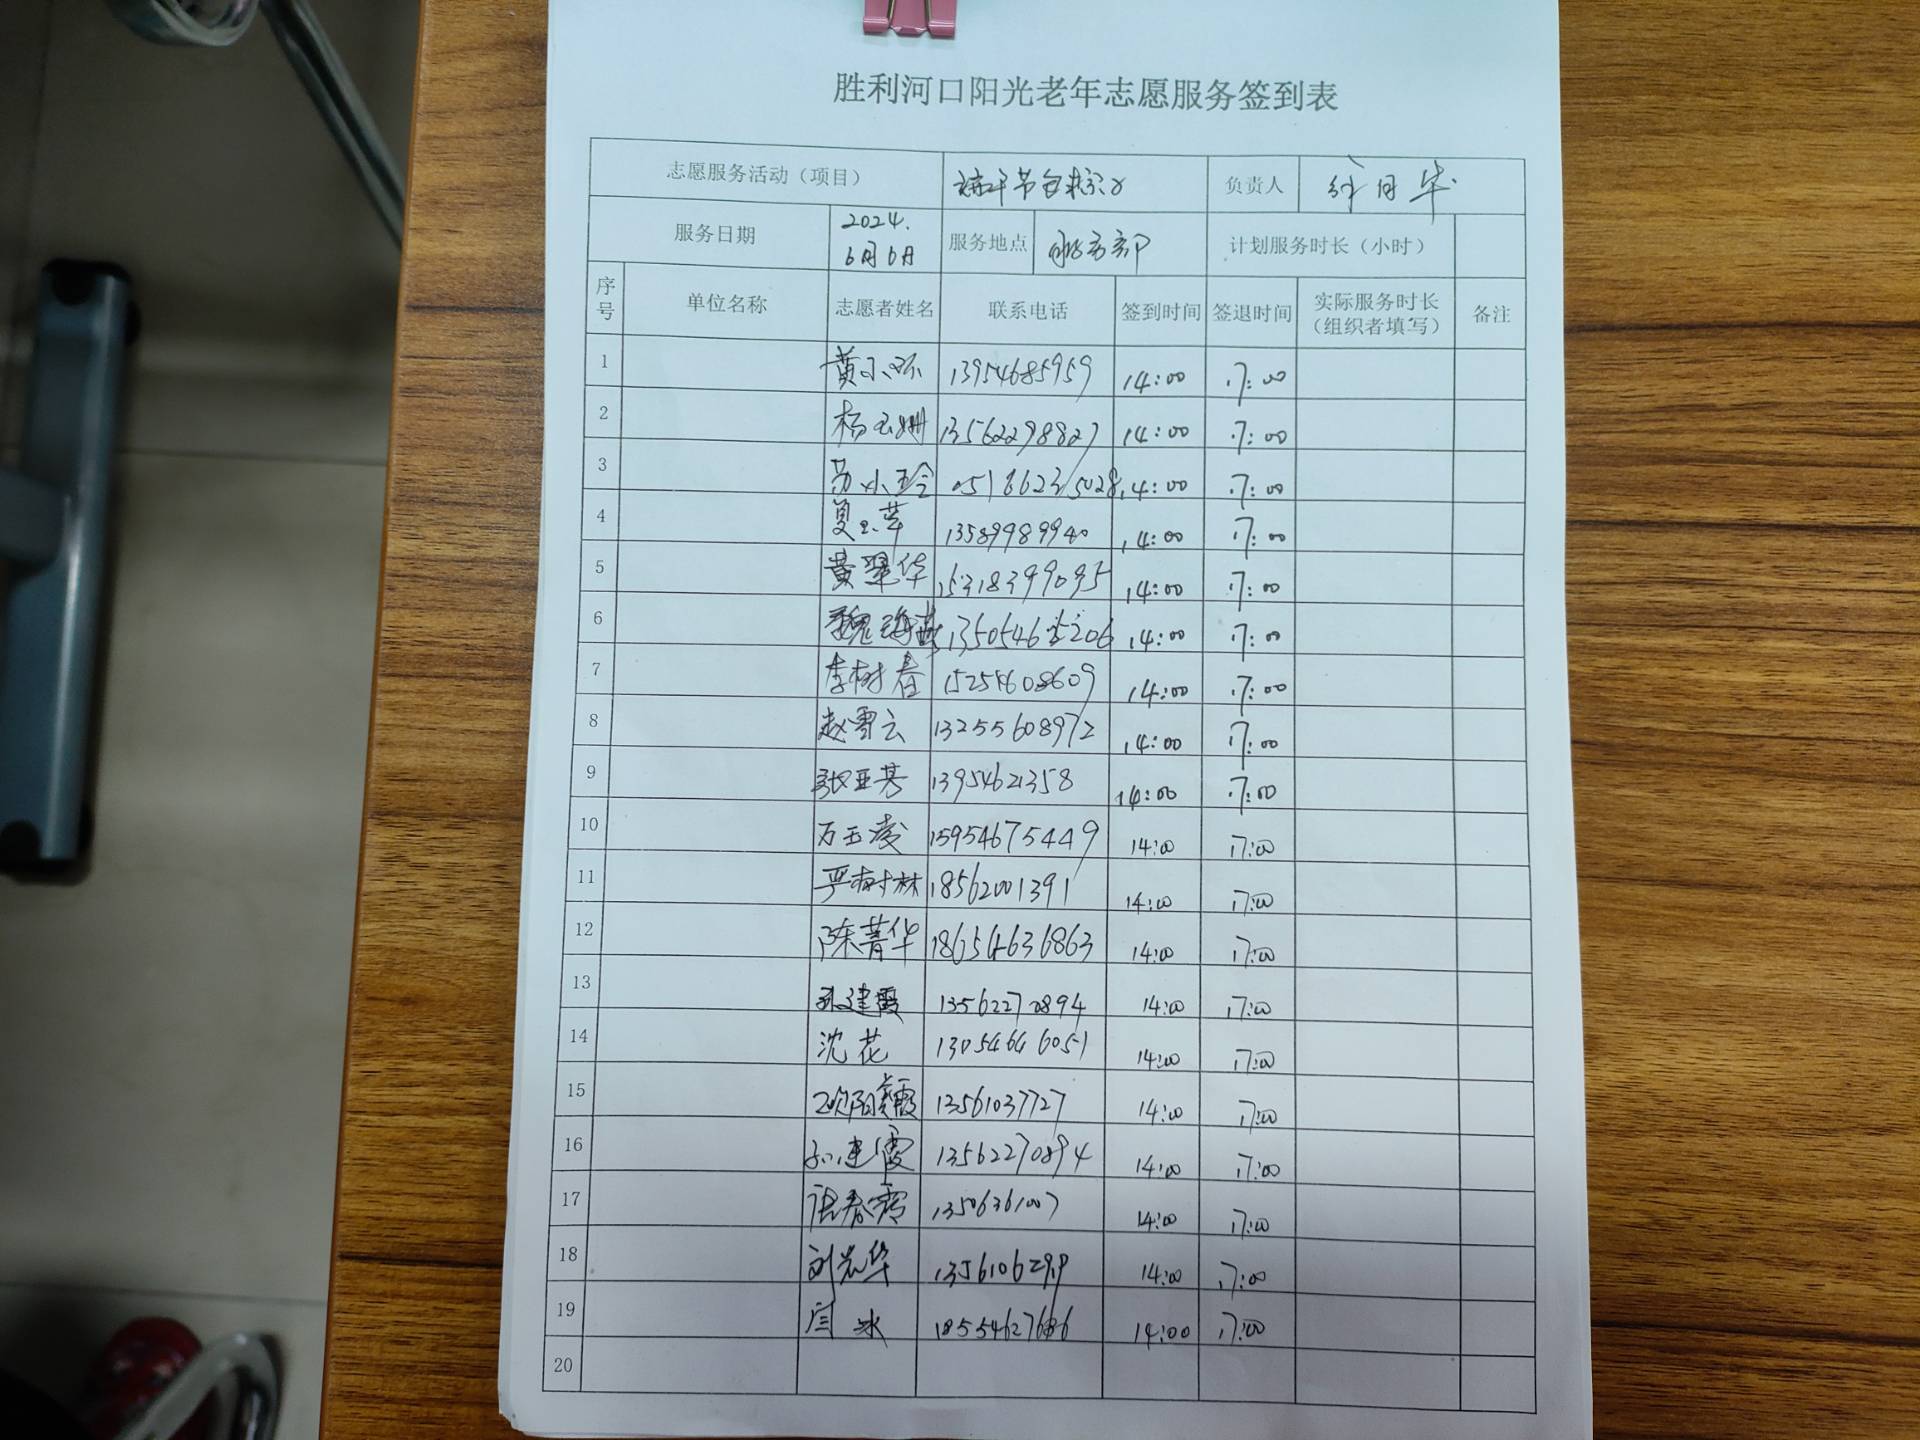 胜利河口阳光老年志愿服务签到表
志愿服务活动（项目） 端午节包粽子 负责人 月华
服务日期 2024.6月6日 服务地点 服务部 计划服务时长（小时）
序号 单位名称 志愿者姓名 联系电话 签到时间 签退时间 实际服务时长（组织者填写） 备注
1 黄小环 13954685959 14:00 17:00
2 杨玉姗 13562298827 14:00 17:00
3 苏小玲 14:00 17:00
4 夏 萍 13589989940 14:00 17:00
5 黄翠华 15318399095 14:00 17:00
6 魏海燕 14:00 17:00
7 李树春 15254608609 14:00 17:00
8 赵雪云 13255608972 14:00 17:00
9 张亚芳 13954621358 14:00 17:00
10 万玉凌 15954675449 14:00 17:00
11 严树林 18562001391 14:00 17:00
12 陈菁华 18654636863 14:00 17:00
13 孙建霞 13562270894 14:00 17:00
14 沈花 13054646051 14:00 17:00
15 欧阳霞 13561037727 14:00 17:00
16 孙建霞 13562270894 14:00 17:00
17 春 13506361007 14:00 17:00
18 刘 华 14:00 17:00
19 闫冰 14:00 17:00
20